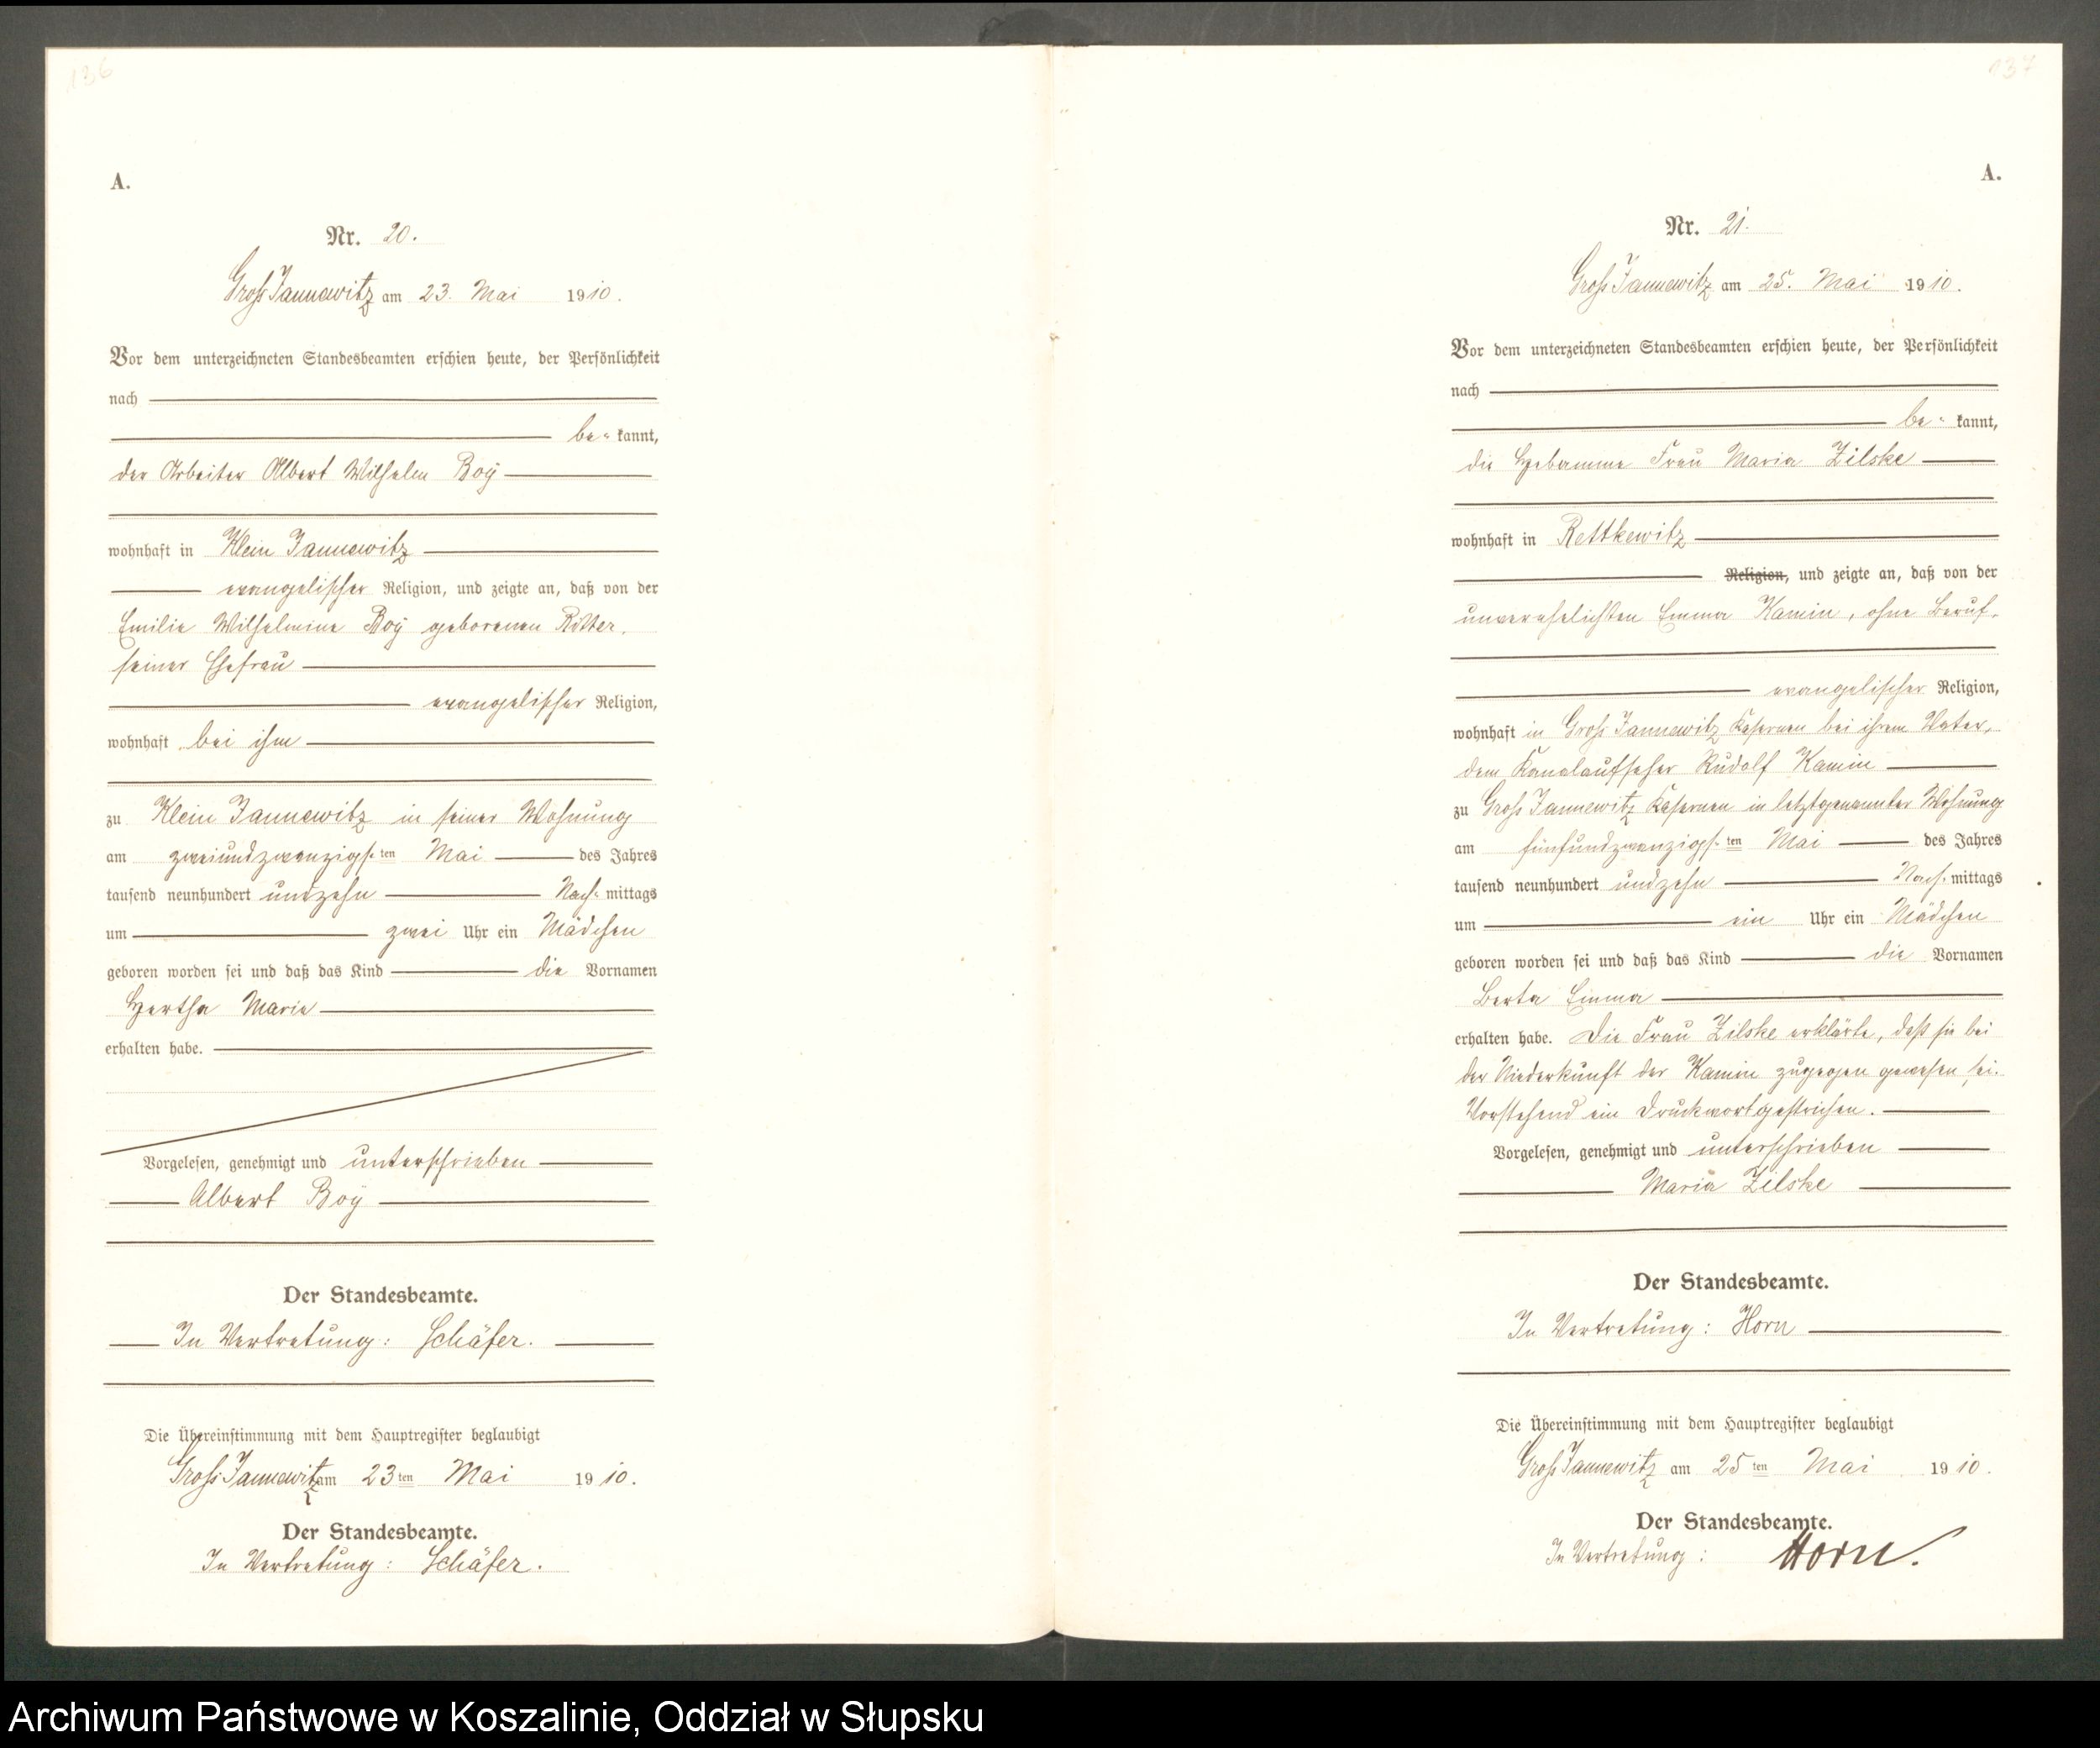 136
A.
Nr. 20.
Groß Jannewitz am 23. Mai 1910.
Vor dem unterzeichneten Standesbeamten erschien heute, der Persönlichkeit
nach
be- kannt,
der Arbeiter Albert Wilhelm Boÿ
wohnhaft in Klein Jannewitz
evangelischer Religion, und zeigte an, daß von der
Emilie Wilhelmine Boÿ geborenen Ritter,
seiner Ehefrau
evangelischer Religion,
wohnhaft bei ihm
zu Klein Jannewitz in seiner Wohnung
am zweiundzwanzigs- ten Mai des Jahres
tausend neunhundert undzehn Nach- mittags
um zwei Uhr ein Mädchen
geboren worden sei und daß das Kind die Vornamen
Hertha Marie
erhalten habe.
Vorgelesen, genehmigt und unterschrieben
Albert Boÿ
Der Standesbeamte.
In Vertretung: Schäfer.
Die Übereinstimmung mit dem Hauptregister beglaubigt
Groß Jannewitz am 23ten Mai 1910.
Der Standesbeamte.
In Vertretung: Schäfer.
137
A.
Nr. 21.
Groß Jannewitz am 25. Mai 1910.
Vor dem unterzeichneten Standesbeamten erschien heute, der Persönlichkeit
nach
be- kannt,
die Hebamme Frau Maria Zilske
wohnhaft in Rettkewitz
Religion, und zeigte an, daß von der
unverehelichten Emma Kamin, ohne Beruf,
evangelischer Religion,
wohnhaft in Groß Jannewitz Kasernen bei ihrem Vater,
dem Kanalaufseher Rudolf Kamin
zu Groß Jannewitz Kasernen in letztgenannter Wohnung
am fünfundzwanzigs- ten Mai des Jahres
tausend neunhundert undzehn Nach- mittags
um ein Uhr ein Mädchen
geboren worden sei und daß das Kind die Vornamen
Berta Emma
erhalten habe. Die Frau Zilske erklärte, daß sie bei
der Niederkunft der Kamin zugegen gewesen sei.
Vorstehend ein Druckwort gestrichen.
Vorgelesen, genehmigt und unterschrieben
Maria Zilske
Der Standesbeamte.
In Vertretung: Horn
Die Übereinstimmung mit dem Hauptregister beglaubigt
Groß Jannewitz am 25ten Mai 1910.
Der Standesbeamte.
In Vertretung: Horn.
Archiwum Państwowe w Koszalinie, Oddział w Słupsku